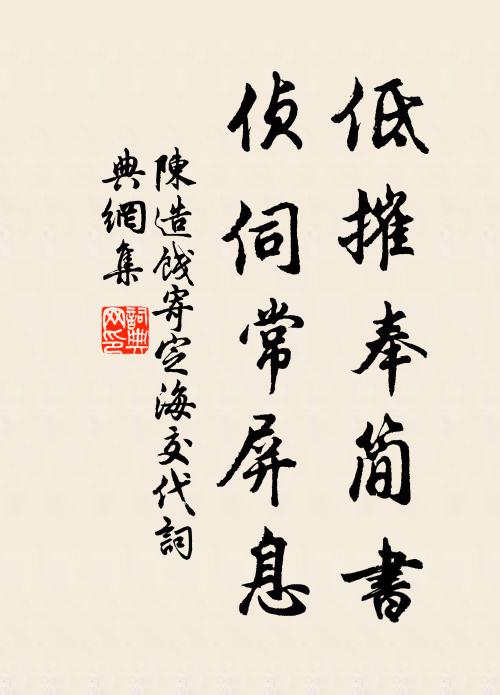 低摧奉简書
侦伺常屏息
陳造餞寄定海交代詞
典網集
詞典网印